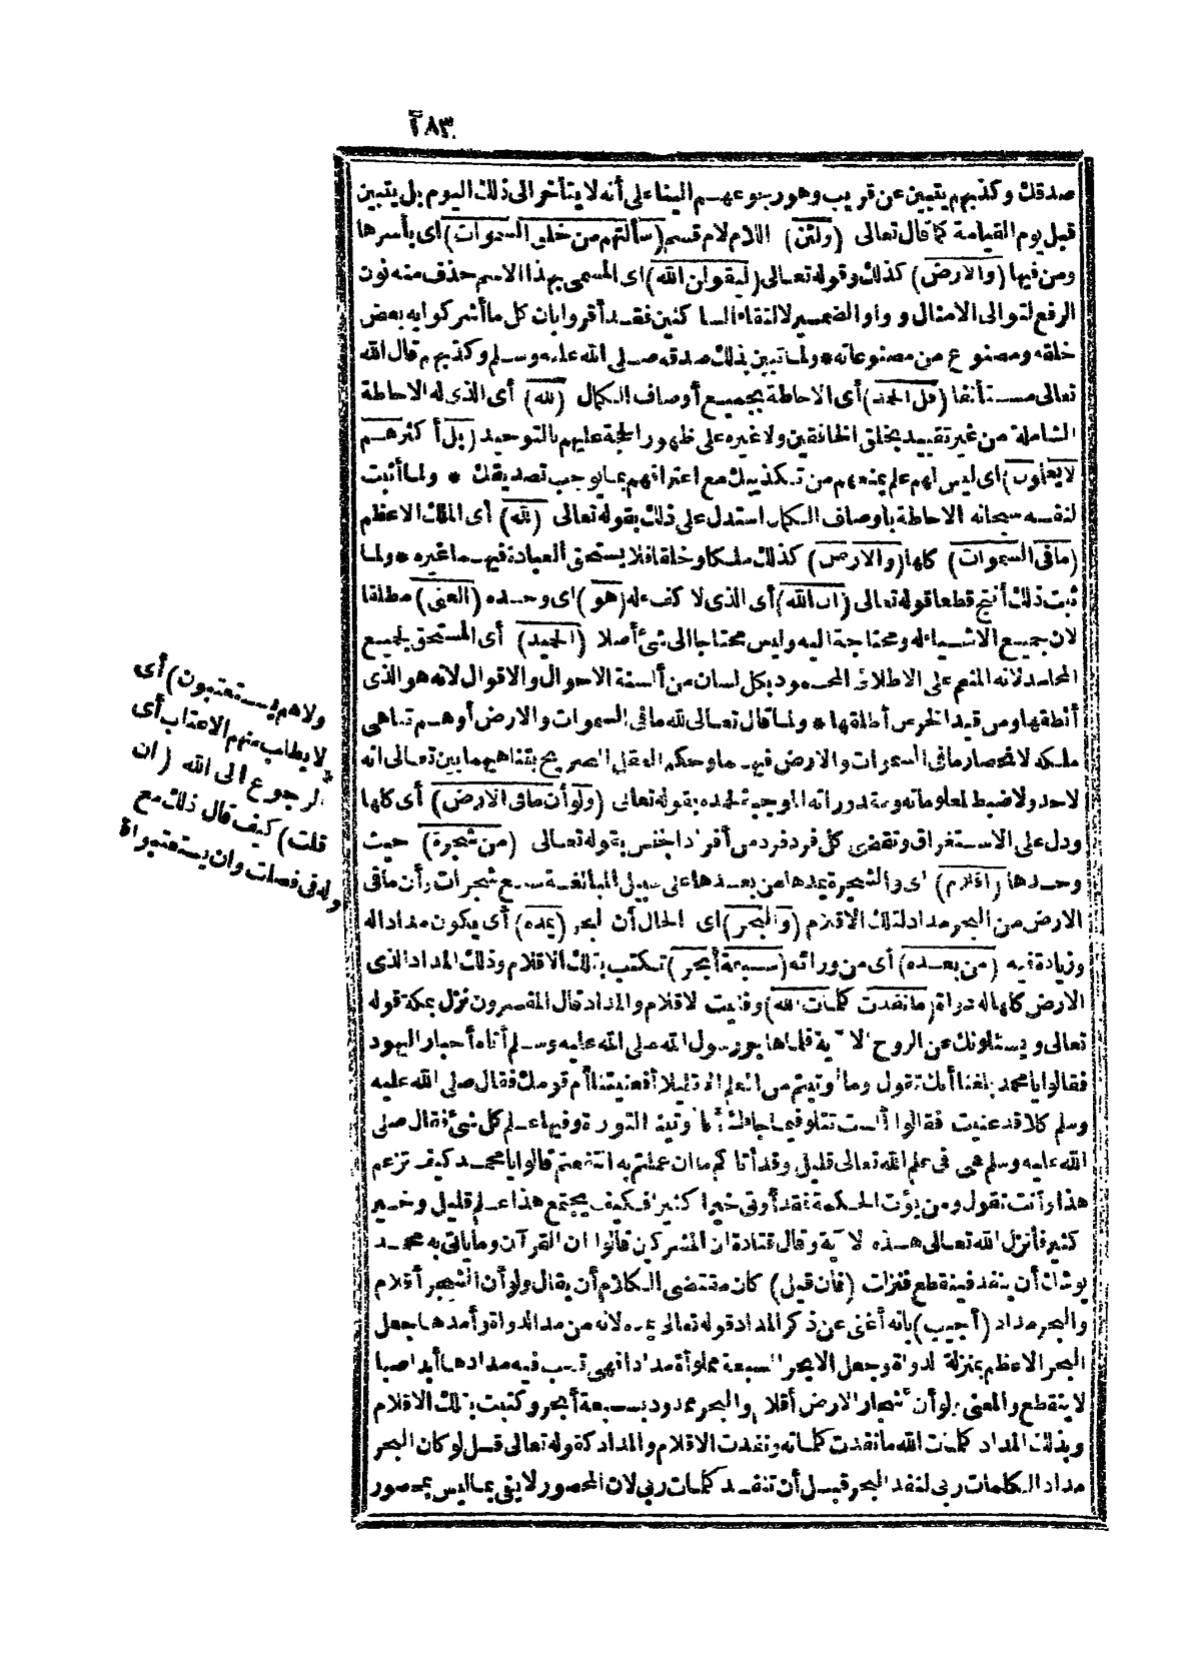 ٢٨٣
صدقك وكذبهم يتبين عن قريب وهو رجوعهم الينا على أنه لا يتأخر الى ذلك اليوم بل يتبين
قبل يوم القيامة كما قال تعالى (ولئن) اللام لام قسم (سألتهم من خلق السموات) اى بأسرها
ومن فيها (والارض) كذلك وقوله تعالى (ليقولن الله) اى المسمى بهذا الاسم حذف منه نون
الرفع لتوالى الامثال وواو الضمير لالتقاء الساكنين فقد أقروا بان كل ما أشركوا به بعض
خلقه ومصنوع من مصنوعاته * ولما تبين بذلك صدقه صلى الله عليه وسلم وكذبهم قال الله
تعالى مستأنفا (قل الحمد) أى الاحاطة بجميع أوصاف الكمال (لله) أى الذى له الاحاطة
الشاملة من غير تقييد بخلق الخافقين ولا غيره على ظهور الحجة عليهم بالتوحيد (بل أكثرهم
لا يعلمون) اى ليس لهم علم يمنعهم من تكذيبك مع اعترافهم بما يوجب تصديقك * ولما أثبت
لنفسه سبحانه الاحاطة باوصاف الكمال استدل على ذلك بقوله تعالى (لله) أى الملك الاعظم
(ما فى السموات) كلها (والارض) كذلك ملكا وخلقا فلا يستحق العبادة فيهما غيره * ولما
ثبت ذلك أنتج قطعا قوله تعالى (ان الله) أى الذى لا كفء له (هو) اى وحده (الغنى) مطلقا
لان جميع الاشياء له ومحتاجة اليه وليس محتاجا الى شئ أصلا (الحميد) أى المستحق لجميع
المحامد لانه المنعم على الاطلاق المحمود بكل لسان من ألسنة الاحوال والاقوال لانه هو الذى
أنطقها ومن قيد الخرس أطلقها * ولما قال تعالى لله ما فى السموات والارض أوهم تناهى
ملكه لانحصار ما فى السموات والارض فيهما وحكم العقل الصريح بتناهيهما بين تعالى انه
لا حد ولا ضبط لمعلوماته ومقدوراته الموجبة لحمده بقوله تعالى (ولو أن ما فى الارض) أى كلها
ودل على الاستغراق وتقضى كل فرد فرد من أفراد الجنس بقوله تعالى (من شجرة) حيث
وحدها (اقلام) اى والشجرة يمدها من بعدها على سبيل المبالغة سبع شجرات وأن ما فى
الارض من البحر مداد لتلك الاقلام (والبحر) اى الحال أن البحر (يمده) أى يكون مدادا له
وزيادة فيه (من بعده) أى من ورائه (سبعة أبحر) تكتب بتلك الاقلام وذلك المداد الذى
الارض كلها له دواة (ما نفدت كلمات الله) وفنيت الاقلام والمداد قال المفسرون نزل بمكة قوله
تعالى ويسئلونك عن الروح الآية فلما هاجر رسول الله صلى الله عليه وسلم أتاه أحبار اليهود
فقالوا يا محمد بلغنا أنك تقول وما أوتيتم من العلم الا قليلا أفعنيتنا أم قومك فقال صلى الله عليه
وسلم كلا قد عنيت فقالوا ألست تتلو فيما جاءك أنا أوتينا التوراة وفيها علم كل شئ فقال صلى
الله عليه وسلم هى فى علم الله تعالى قليل وقد أتاكم ما ان عملتم به انتفعتم قالوا يا محمد كيف تزعم
هذا وأنت تقول ومن يؤت الحكمة فقد أوتى خيرا كثيرا فكيف يجتمع هذا علم قليل وخير
كثير فأنزل الله تعالى هذه الآية وقال قتادة ان المشركين قالوا ان القرآن وما يأتى به محمد
يوشك أن ينفد فينقطع فنزلت (فان قيل) كان مقتضى الكلام أن يقال ولو أن الشجر أقلام
والبحر مداد (أجيب) بانه أغنى عن ذكر المداد قوله تعالى يمده لانه من مد الدواة وأمدها جعل
البحر الاعظم بمنزلة الدواة وجعل الابحر السبعة مملوأة مدادا فهى تصب فيه مدادها أبدا صبا
لا ينقطع والمعنى ولو أن أشجار الارض أقلام والبحر ممدود بسبعة أبحر وكتبت بتلك الاقلام
وبذلك المداد كلمات الله ما نفدت كلماته ونفدت الاقلام والمداد كقوله تعالى قل لو كان البحر
مدادا لكلمات ربى لنفد البحر قبل أن تنفد كلمات ربى لان المحصور لا يفى بما ليس بمحصور
ولا هم يستعتبون) أى
لا يطلب منهم الاعتاب أى
الرجوع الى الله (ان
قلت) كيف قال ذلك مع
قوله فى فصلت وان يستعتبوا